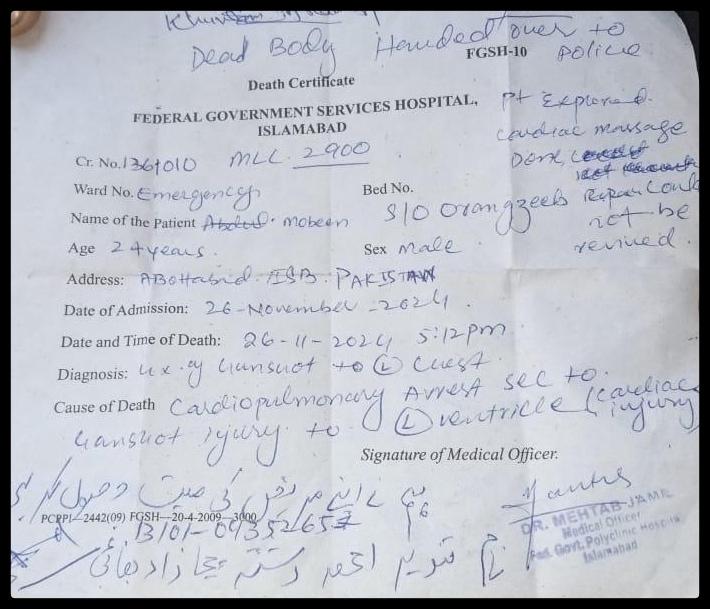 Dead Body Handed over to
Police
FGSH-10
Death Certificate
FEDERAL GOVERNMENT SERVICES HOSPITAL,
ISLAMABAD
Pt Explored.
Cardiac massage
Done,
Repair Could
not be
revived.
Cr. No. 1361010 MLC. 2900
Ward No. Emergency Bed No.
Name of the Patient Abdul. Mobeen S/O Orangzeeb
Age 24 years. Sex Male
Address: ABottabad. ISB. PAKISTAN
Date of Admission: 26-November-2024.
Date and Time of Death: 26-11-2024 5:12pm
Diagnosis: Hx of Gunshot to (L) Chest.
Cause of Death Cardiopulmonary Arrest sec to.
Gunshot injury to (L) ventricle (cardiac injury)
Signature of Medical Officer.
نعش کی میت وصول کر لی
PCPPI—2442(09) FGSH—20-4-2009—3000
13101-0935265
DR. MEHTAB JAMIL
Medical Officer
Fed. Govt. Polyclinic Hospital
Islamabad
نام احمد رشتہ چچا زاد بھائی